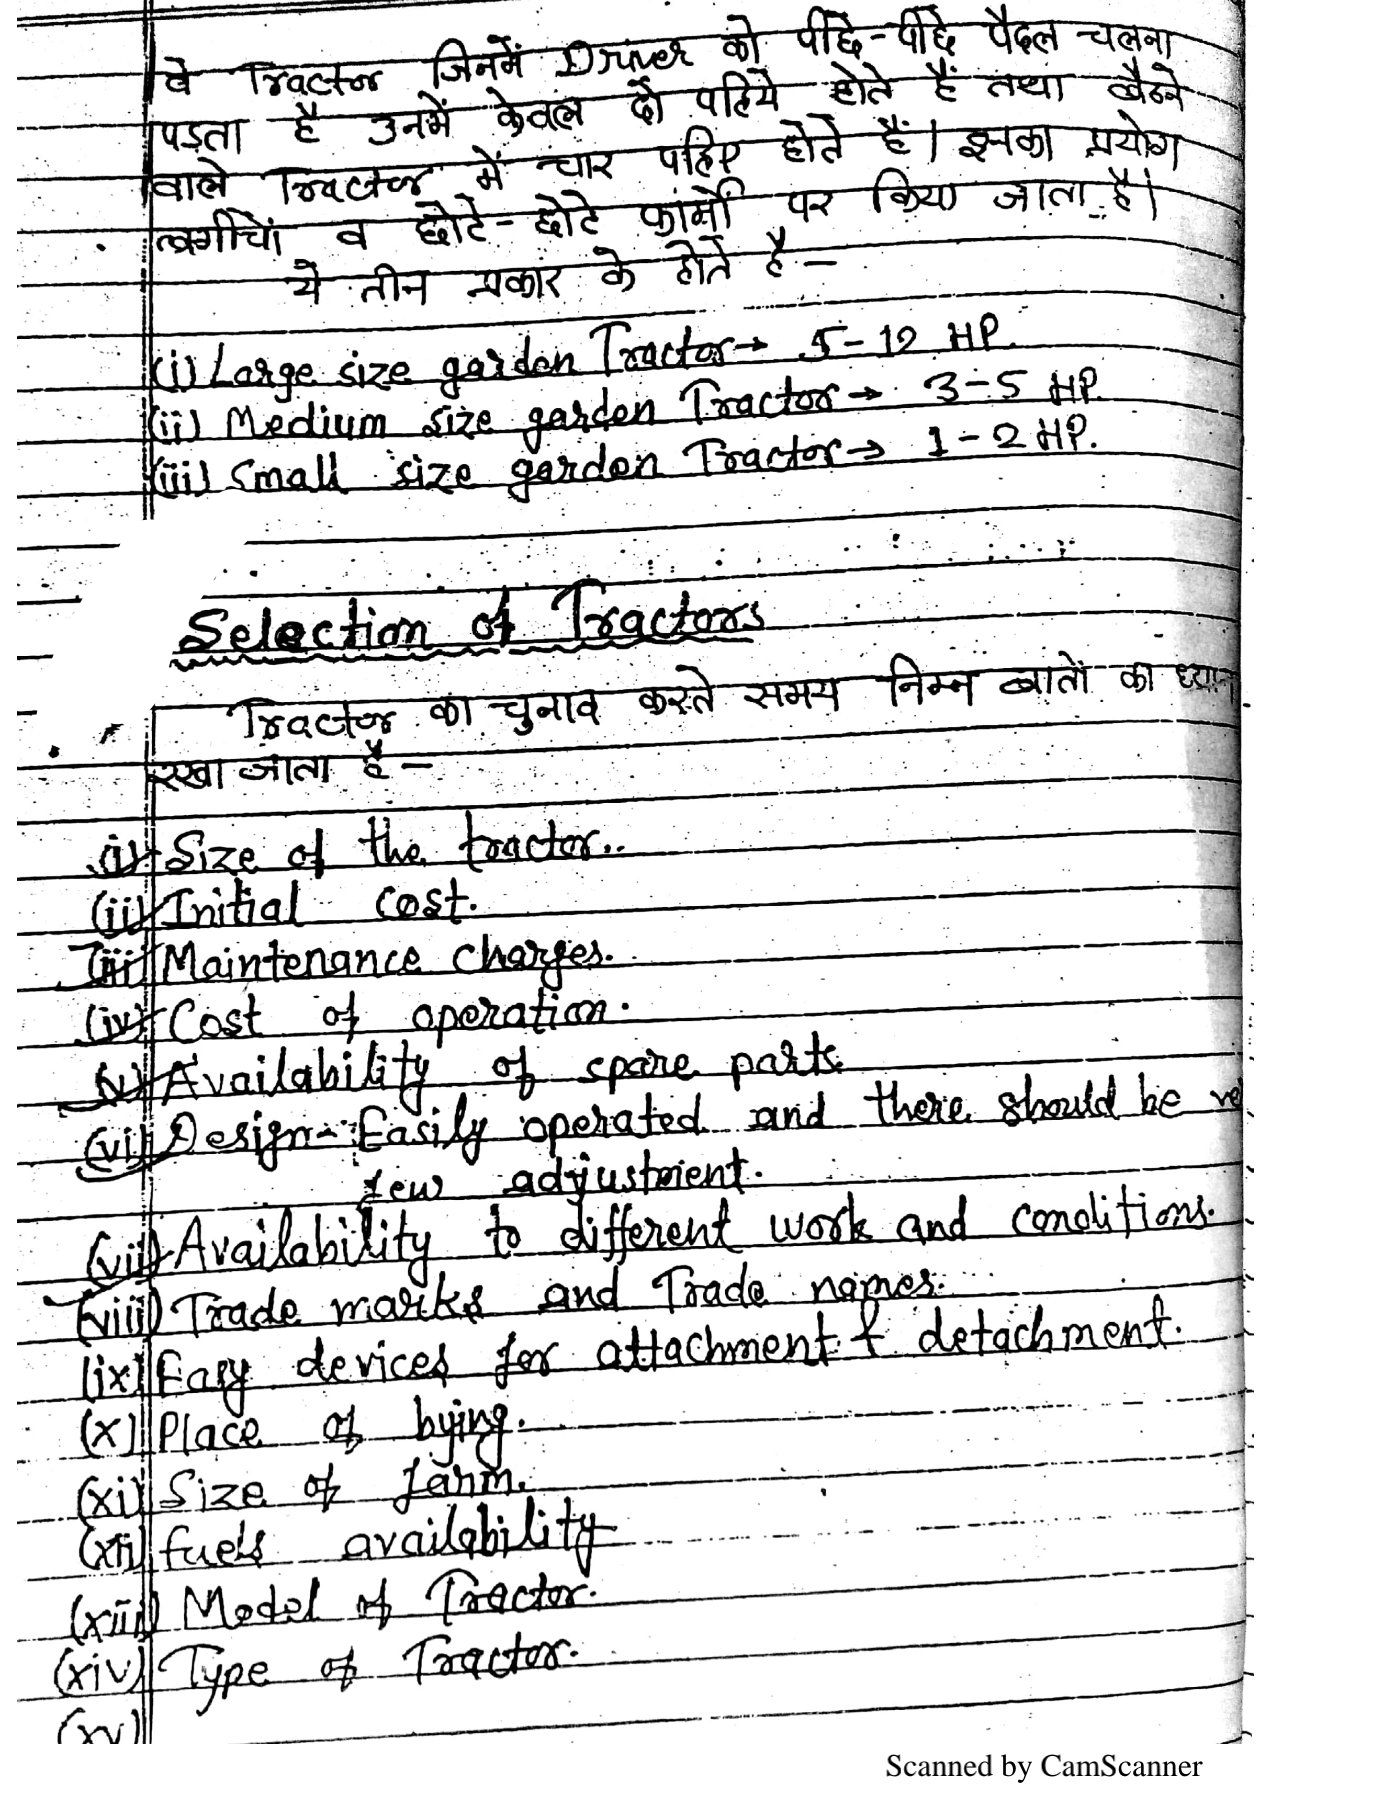 वे Tractor जिनमें Driver को पीछे-पीछे पैदल चलना
पड़ता है उनमें केवल दो पहिये होते हैं तथा बैठने
वाले Tractor में चार पहिए होते हैं। इनका प्रयोग
बगीचों व छोटे-छोटे फार्मों पर किया जाता है।
ये तीन प्रकार के होते है-
(i) Large size garden Tractor→ 5-12 HP.
(ii) Medium size garden Tractor→ 3-5 HP.
(iii) Small size garden Tractor→ 1-2 HP.
Selection of Tractors
Tractor का चुनाव करते समय निम्न बातों का ध्यान
रखा जाता है-
(i) Size of the tractor.
(ii) Initial cost.
(iii) Maintenance charges.
(iv) Cost of operation.
(v) Availability of spare parts.
(vi) Design- Easily operated and there should be ve
few adjustment.
(vii) Availability to different work and conditions.
(viii) Trade marks and Trade names.
(ix) Easy devices for attachment & detachment.
(x) Place of bying.
(xi) Size of farm.
(xii) fuels availability
(xiii) Model of Tractor.
(xiv) Type of Tractor.
(xv)
Scanned by CamScanner